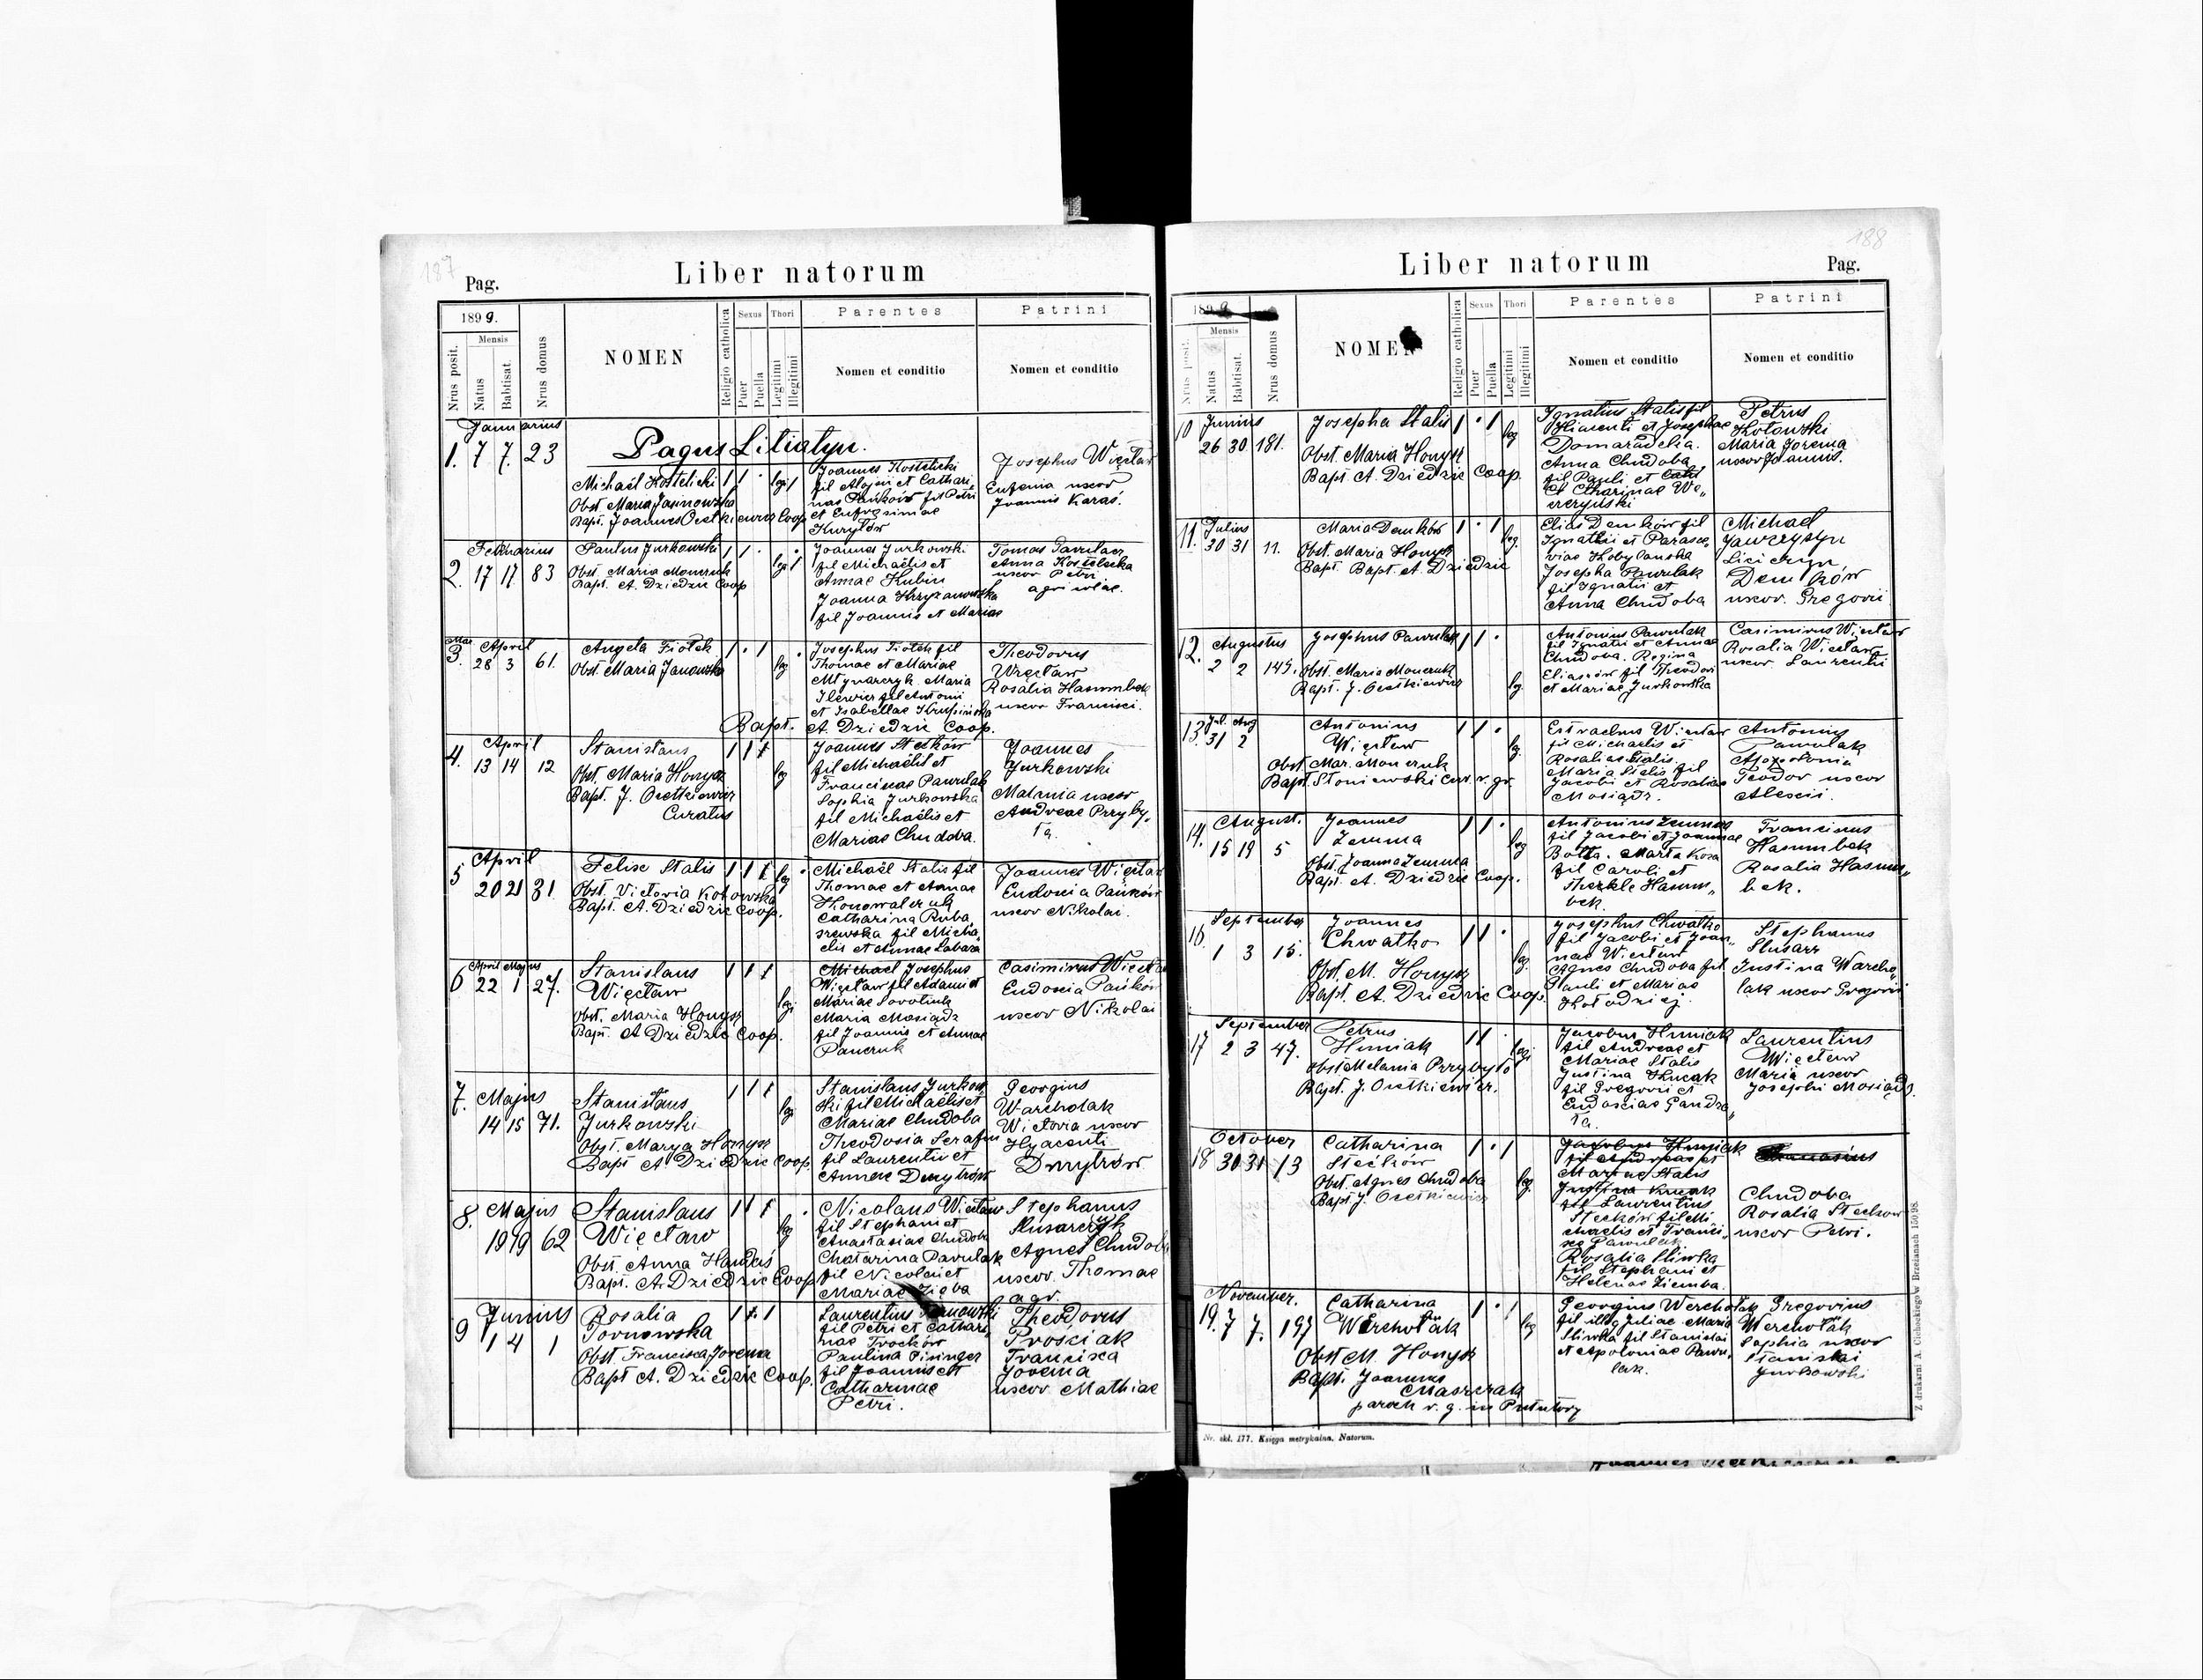 187
Pag.
Liber natorum
1899.
Nrus posit.
Mensis
Natus
Babtisat.
Nrus domus
NOMEN
Religio catholica
Sexus
Puer
Puella
Thori
Legitimi
Illegitimi
Parentes
Nomen et conditio
Patrini
Nomen et conditio
Pagus Litiatyn.
Januarius
1. 7 7. 23
Michaël Kostelicki
Obst Maria Jasinowska
Bapt. Joannes Ocetkiewicz Coop
Joannes Kostelicki
fil Alojsii et Cathari
nae Pańków fil Petri
et Eufrosimae
Kuryłów
Josephus Więcław
Eufenia uxor
Joannis Karaś.
Februarius
2. 17 17 83
Paulus Jurkowski
Obst Maria Monczuk
Bapt. A. Dziedzic Coop
Joannes Jurkowski
fil Michaëlis et
Annae Kubin
Joanna Krzyzanowska
fil Joannis et Mariae
Tomas Pawulacz
Anna Kostelecka
uxor Petri
agricolae.
Mar. April
3. 28 3 61.
Angela Fiołek
Obst Maria Janowska
Bapt. A. Dziedzic Coop.
Josephus Fiołek fil
Thomae et Mariae
Młynarczyk. Maria
Ilewicz fil Antoni
et Isabellae Krupińska
Theodorus
Więcław
Rosalia Hasumbek
uxor Francisci.
April
4. 13 14 12
Stanislaus
Obst. Maria Honysz
Bapt. J. Ocetkiewicz
Curatus
Joannes Stećków
fil Michaëlis et
Franciscae Pawulak
Sophia Jurkowska
fil Michaëlis et
Mariae Chudoba.
Joannes
Jurkowski
Malania uxor
Andreae Przyby„
ła.
April
5 20 21 31
Felix Stalis
Obst. Victoria Kotowska
Bapt. A. Dziedzic Coop.
Michaël Stalis fil
Thomae et Annae
Konowalczuk
Catharina Ruba
szewska fil Micha„
elis et Annae Labaza
Joannes Więcław
Eudocia Pańków
uxor Nikolai.
April Majus
6 22 1 27.
Stanislaus
Więcław
Obst. Maria Honysz
Bapt. A Dziedzic Coop.
Michael Josephus
Więcław fil Adami et
Mariae
Maria Mosiądz
fil Joannis et Annae
Panczuk
Casimirus Więcław
Eudocia Pańków
uxor Nikolai
Majus
7. 14 15 71.
Stanislaus
Jurkowski
Obst. Marya Honysz
Bapt A Dziedzic Coop.
Stanislaus Jurkow
ski fil Michaëlis et
Mariae Chudoba
Theodosia Serafin
fil Laurentii et
Annae Dmytrów
Georgius
Warcholak
Wictoria uxor
Hyacenti
Dmytrów
Majus
8. 19 19 62
Stanislaus
Więcław
Obst. Anna
Bapt. A. Dziedzic Coop
Nicolaus Więcław
fil Stephani et
Anastasiae Chudoba
Chatarina Pawulak
fil Nicolai et
Mariae Zięba
Stephanus
Slusarczyk
Agnes Chudoba
uxor Thomae
agr.
Junius
9 1 4 1
Rosalia
Tornowska
Obst. Francisca Jorema
Bapt A. Dziedzic Coop.
Laurentius
fil Petri et Cathari
nae Troćków
Paulina Pisinger
fil Joannis et
Catharinae
Petri.
Theodorus
Prosciak
Francisca
Jorema
uxor Mathiae
188
Liber natorum
Pag.
Nrus posit.
Mensis
Natus
Babtisat.
Nrus domus
NOMEN
Religio catholica
Sexus
Puer
Puella
Thori
Legitimi
Illegitimi
Parentes
Nomen et conditio
Patrini
Nomen et conditio
Junius
10 26 30 181.
Josepha Stalis
Obst Maria Honysz
Bapt A. Dziedzic Coop.
Ignatius Stalis fil
Klimenti et Josephae
Domaradelia.
Anna Chudoba
fil Pauli et
et Catharinae We„
reryński
Petrus
Kotowski
Maria Jorema
uxor Joannis.
Julius
11. 30 31 11.
Maria Demków
Obst. Maria Honysz
Bapt. Bapt. A. Dziedzic
Elias Demków fil
Ignatii et Parasce„
viae Kobylanska
Josepha Pawulak
fil Ignatii et
Anna Chudoba
Michael
Jawczystyn
Demków
uxor. Gregorii
Augustus
12. 2 2 145.
Josephus Pawulak
Obst. Maria Monczuk
Bapt. J. Ocetkiewicz
Antonius Pawulak
fil Ignatii et Annae
Chudoba. Regina
Eliaszów fil Theodori
et Mariae Jurkowska
Casimirus Więcław
Rosalia Więcław
uxor Laurentii
Jul. Aug
13. 31 2
Antonius
Więcław
Obst Mar. Monczuk
Bapt. Słoniewski Cur. r. gr.
Estrachus Więcław
fil Michaelis et
Rosaliae Stalis.
Maria Stalis fil
Jacobi et Rosaliae
Mosiądz.
Antonius
Pawulak
Appolonia
Teodor uxor
Alexii.
August.
14. 15 19 5
Joannes
Zemma
Obst. Joanna Zemma
Bapt. A. Dziedzic Coop.
Antonius Zemma
fil Jacobi et Joannae
Botta. Marta Koza
fil Caroli et
Theklae Hasum„
bek.
Franciscus
Hasumbek
Rosalia Hasum„
bek.
September
16. 1 3 15.
Joannes
Chwatko
Obst. M. Honysz
Bapt. A. Dziedzic Coop.
Josephus Chwatko
fil Jacobi et Joan„
nae Więcław
Agnes Chudoba fil
Pauli et Mariae
Kołodziej.
Stephanus
Slusarz
Justina Warcho„
lak uxor Gregorii
September
17 2 3 47.
Petrus
Humiak
Obst Melania Przybyło
Bapt. J. Ocetkiewicz.
Jacobus Humiak
fil Andreae et
Mariae Stalis
Justina Kucak
fil Gregorii et
Eudosciae Gandza„
ła.
Laurentius
Więcław
Maria uxor
Josephi Mosiądz.
October
18 30 31 13
Catharina
Stećków
Obst. Agnes Chudoba
Bapt J. Ocetkiewicz
Jacobus Humiak
fil Andreae et
Mariae Stalis
Justina Kucak
fil Laurentius
Stećków fil Mi
chaelis et Franci„
scae Pawulak
Rosalia Sliwka
fil Stephani et
Helenae Ziemba.
Chudoba
Rosalia Steckow
uxor Petri.
November.
19. 7 7. 197
Catharina
Wercholak
Obst M. Honysz
Bapt. Joannes
Maszczak
paroch r. g. in Potutory
Georgius Wercholak
fil illeg Juliae Maria
Sliwka fil Stanislai
et Apoloniae Pawu„
lak.
Gregorius
Wercholak
Sophia uxor
Stanislai
Jurkowski
Nr. skł. 177. Księga metrykalna. Natorum.
Z drukarni A. Cichockiego w Brzeżanach 150/98.